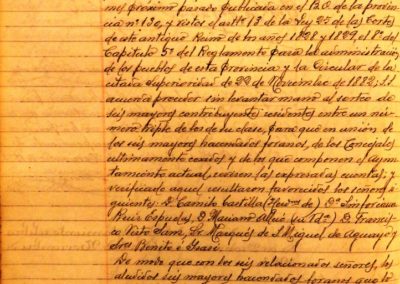 mes proximo pasado publicada en el B.O. de la provin-
cia nº 130, y vistos el artº 13 de la Ley 25 de las Cortes
de este antiguo Reino de los años 1828 y 1829, el 8º del
Capitulo 5º del Reglamento para la administracion
de los pueblos de esta provincia y la Circular de la
citada superioridad de 22 de Noviembre de 1882; se
acuerda proceder sin levantar mano al sorteo de
seis mayores contribuyentes residentes entre un nú-
mero triple de los de su clase, para que en union de
los seis mayores hacendados foranos, de los Concejales
ultimamente cesados y de los que componen el Ayun-
tamiento actual, revisen las expresadas cuentas; y
verificado aquel resultaron favorecidos los señores si-
guientes: D. Camilo Castilla
Ruiz D. Francis-
co Sr. Marqués de S. Miguel de Aguayo y
Benito
De modo que con los seis relacionados señores, los
aludidos seis mayores hacendados foranos que lo